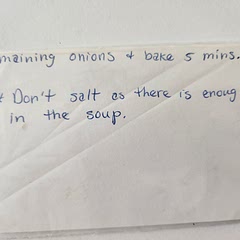 maining onions + bake 5 mins.
* Don't salt as there is enoug
in the soup.